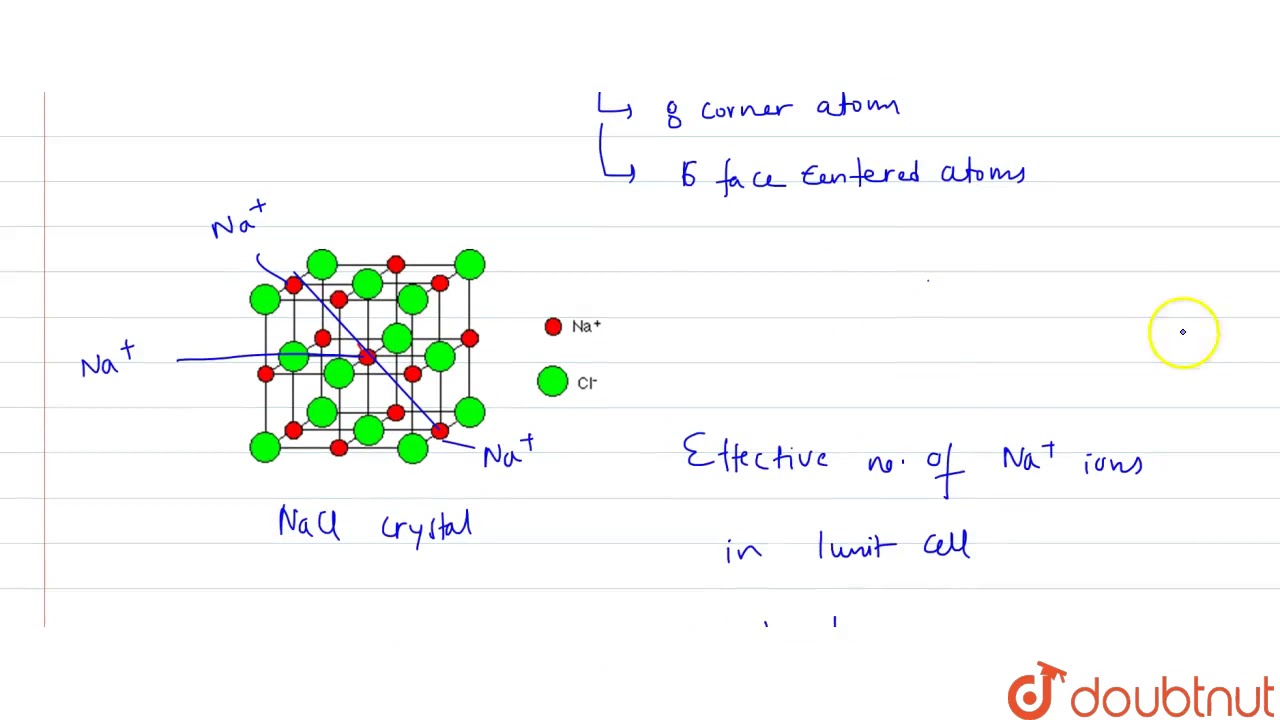 ↳ 8 corner atoms
↳ 6 face centered atoms
Na⁺
Na⁺
Na⁺
Cl⁻
Na⁺
Effective no. of Na⁺ ions
NaCl crystal
in 1 unit cell
doubtnut